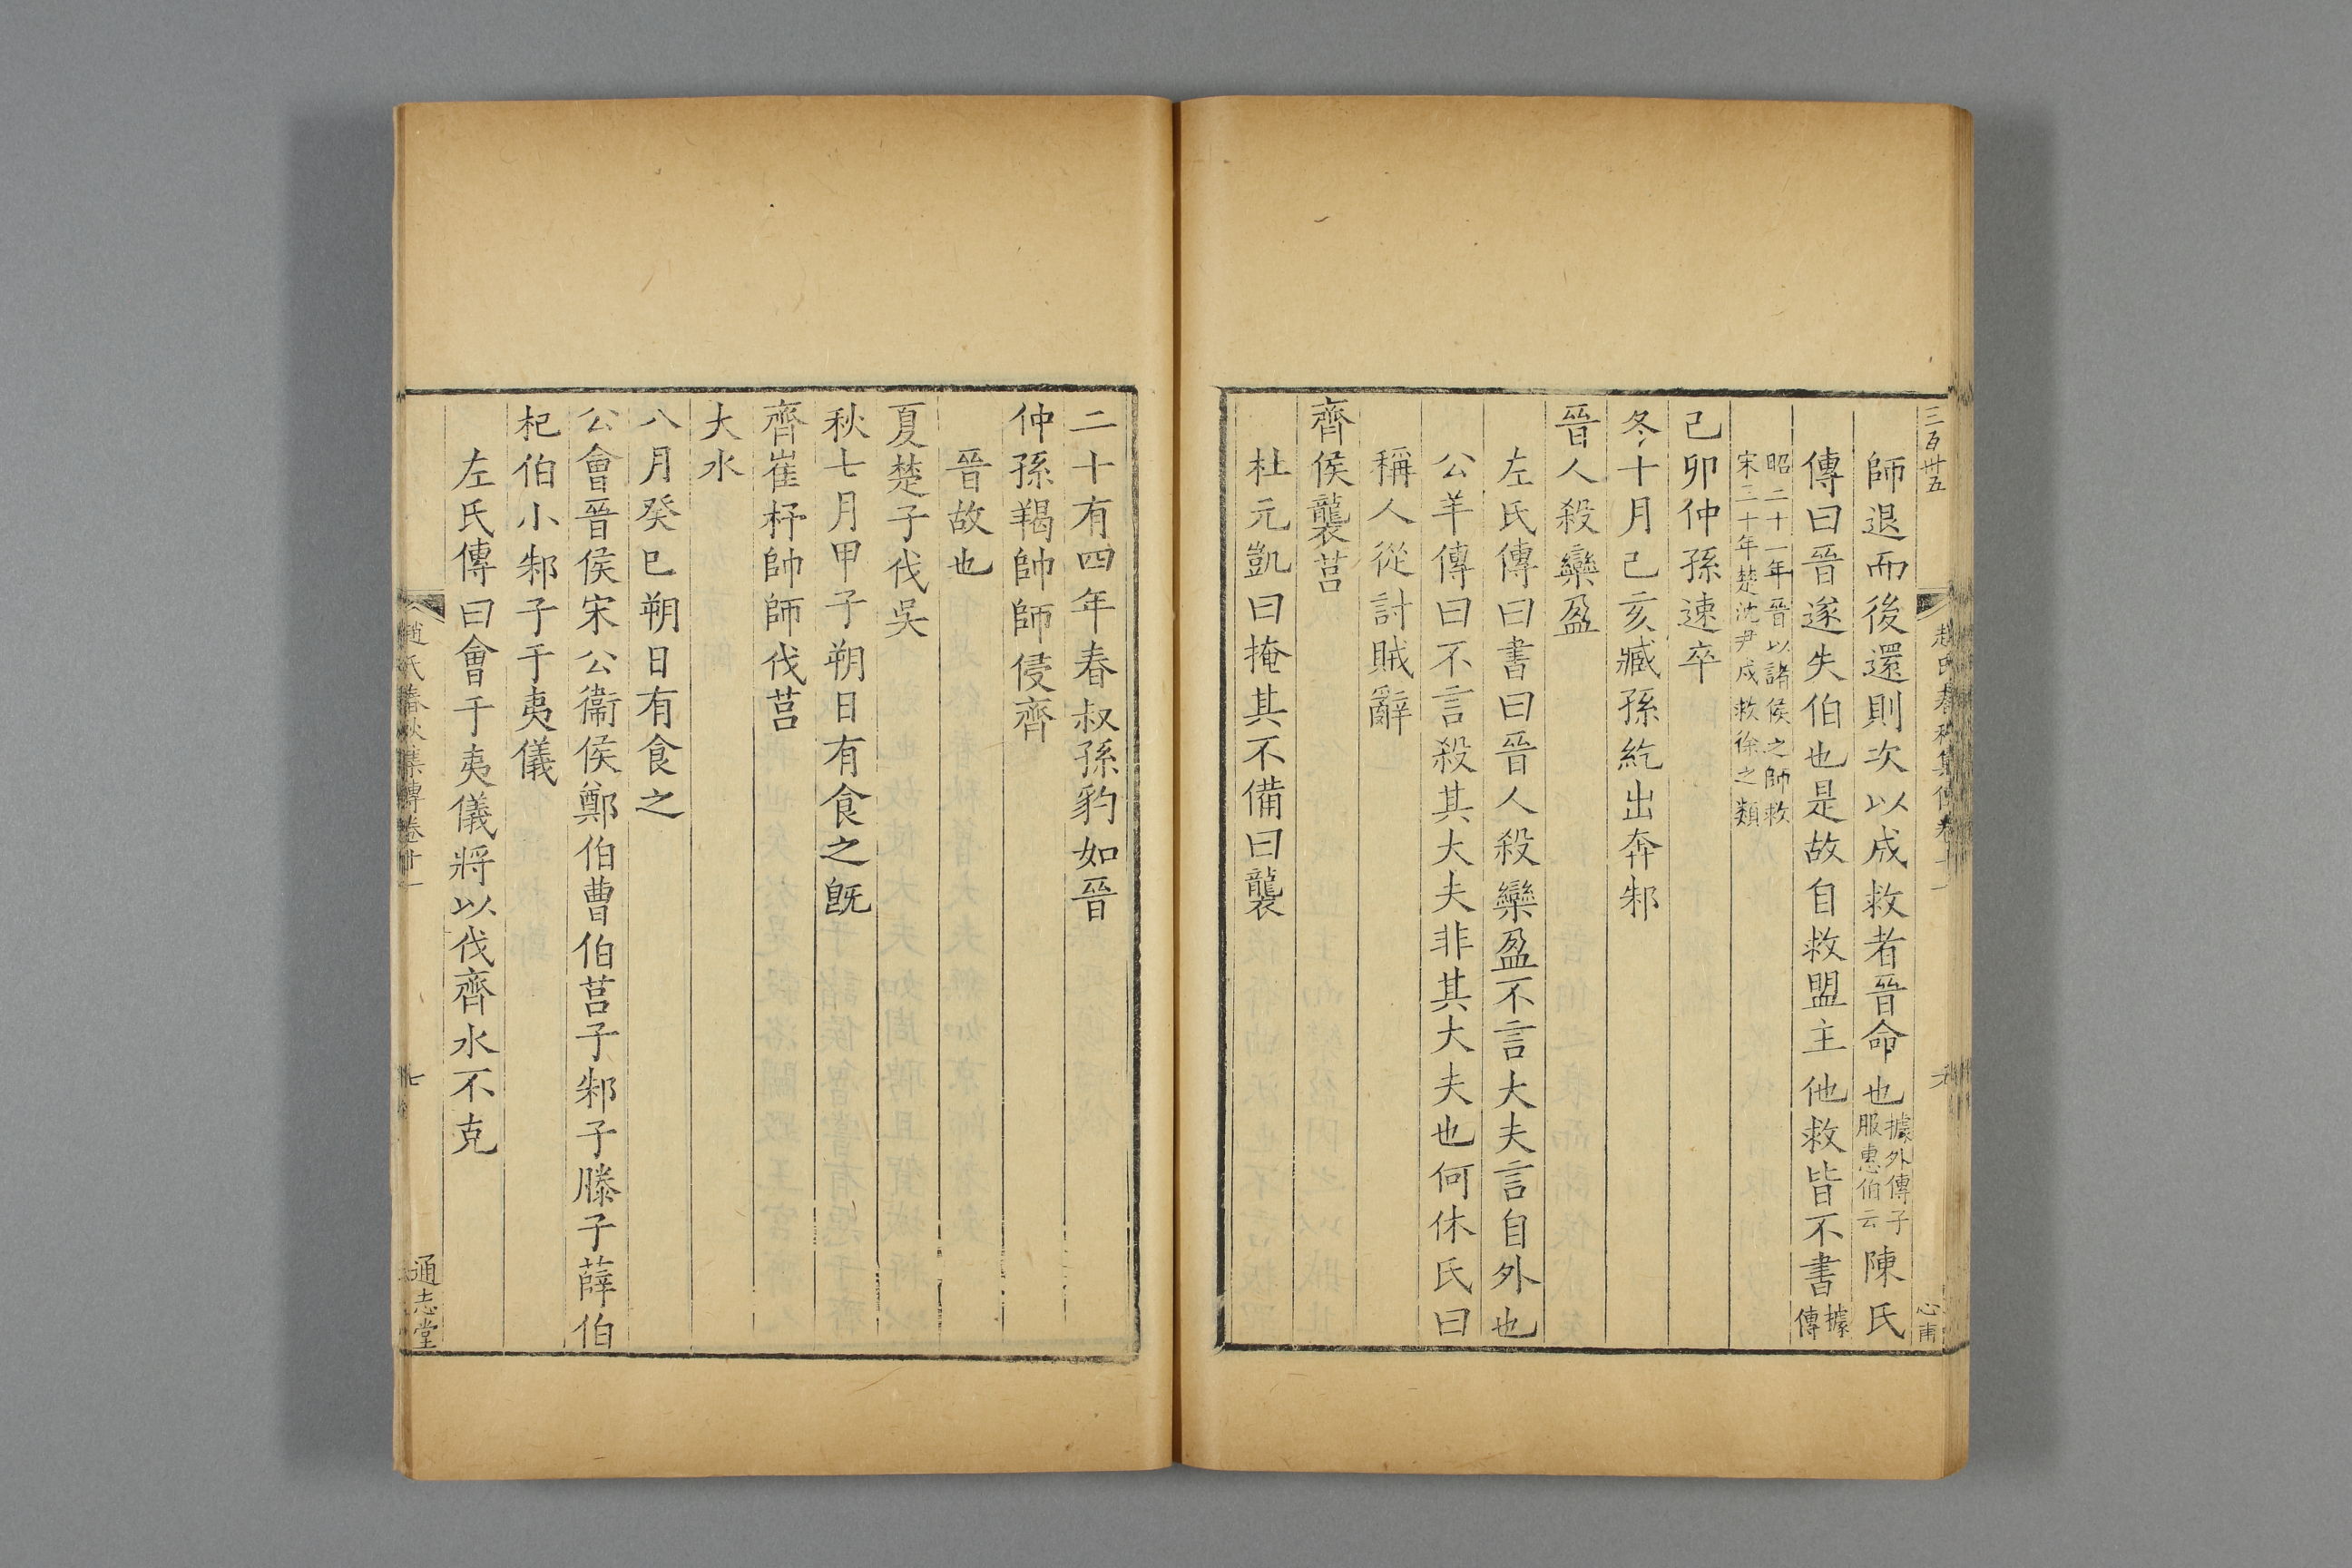 三百卅五
師退而後還則次以成救者晉命也據外傳子服惠伯云陳氏
傳曰晉遂失伯也是故自救盟主他救皆不書據傳
昭二十一年晉以諸侯之師救
宋三十年楚沈尹戍救徐之類
己卯仲孫速卒
冬十月乙亥臧孫紇出奔邾
晉人殺欒盈
左氏傳曰書曰晉人殺欒盈不言大夫言自外也
公羊傳曰不言殺其大夫非其大夫也何休氏曰
稱人從討賊辭
齊侯襲莒
杜元凱曰掩其不備曰襲
二十有四年春叔孫豹如晉
仲孫羯帥師侵齊
晉故也
夏楚子伐吳
秋七月甲子朔日有食之旣
齊崔杼帥師伐莒
大水
八月癸巳朔日有食之
公會晉侯宋公衞侯鄭伯曹伯莒子邾子滕子薛伯
杞伯小邾子于夷儀
左氏傳曰會于夷儀將以伐齊水不克
趙氏春秋集傳卷十一
七
通志堂